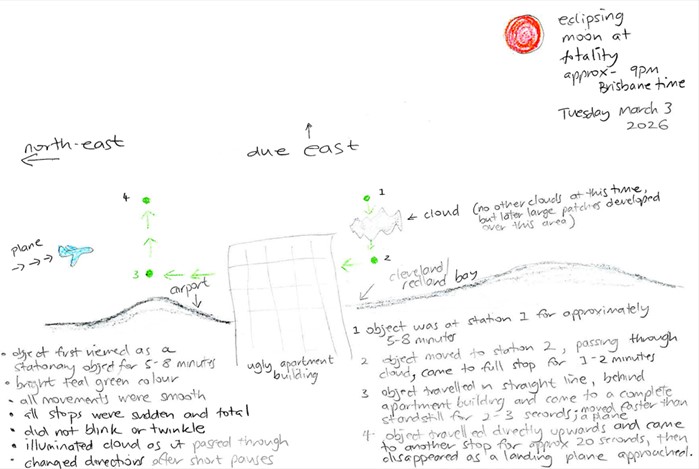 eclipsing
moon at
totality
approx- 9pm
Brisbane time
Tuesday March 3
2026
north-east
due east
4
1
cloud (no other clouds at this time,
but later large patches developed
over this area)
plane
2
3
airport
cleveland/
redland bay
ugly apartment
building
• object first viewed as a
stationary objed for 5-8 minutes
• bright teal green colour
• all movements were smooth
• all stops were sudden and total
• did not blink or twinkle
• illuminated cloud as it passed through
• changed directions after short pauses
1 object was at station 1 for approximately
5-8 minutes
2 object moved to station 2, passing through
cloud, came to full stop for 1-2 minutes
3 object travelled in straight line, behind
apartment building and came to a complete
standstill for 2-3 seconds; moved faster than
a plane
4- object travelled directly upwards and came
to another stop for approx 20 seconds, then
disappeared as a landing plane approached.